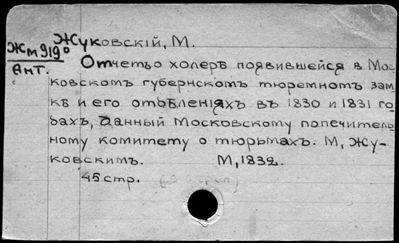 Жуковскій, М.
Жм 919°
Ант.
Отчетъ о холерѣ появившейся в Мос
ковскомъ губернскомъ тюремномъ зам
кѣ и его отдѣленіяхъ въ 1830 и 1831 го
дахъ, данный Московскому попечитель
ному комитету о тюрьмахъ. М. Жу-
ковскимъ. М, 1832.
45 стр.